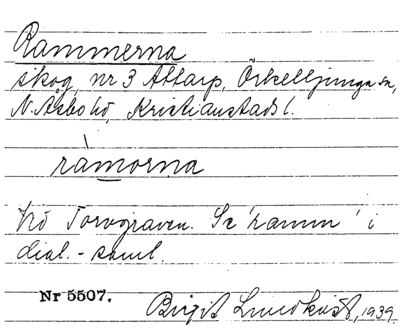 Rammerna
skog, nr 3 Attarp, Örkelljunga sn,
N. Åsbo hd, Kristianstads l.
ràmorna
hö Torvgraven. Se 'ramm' i
dial.-saml.
Nr 5507. Birgit Lundkvist, 1939.